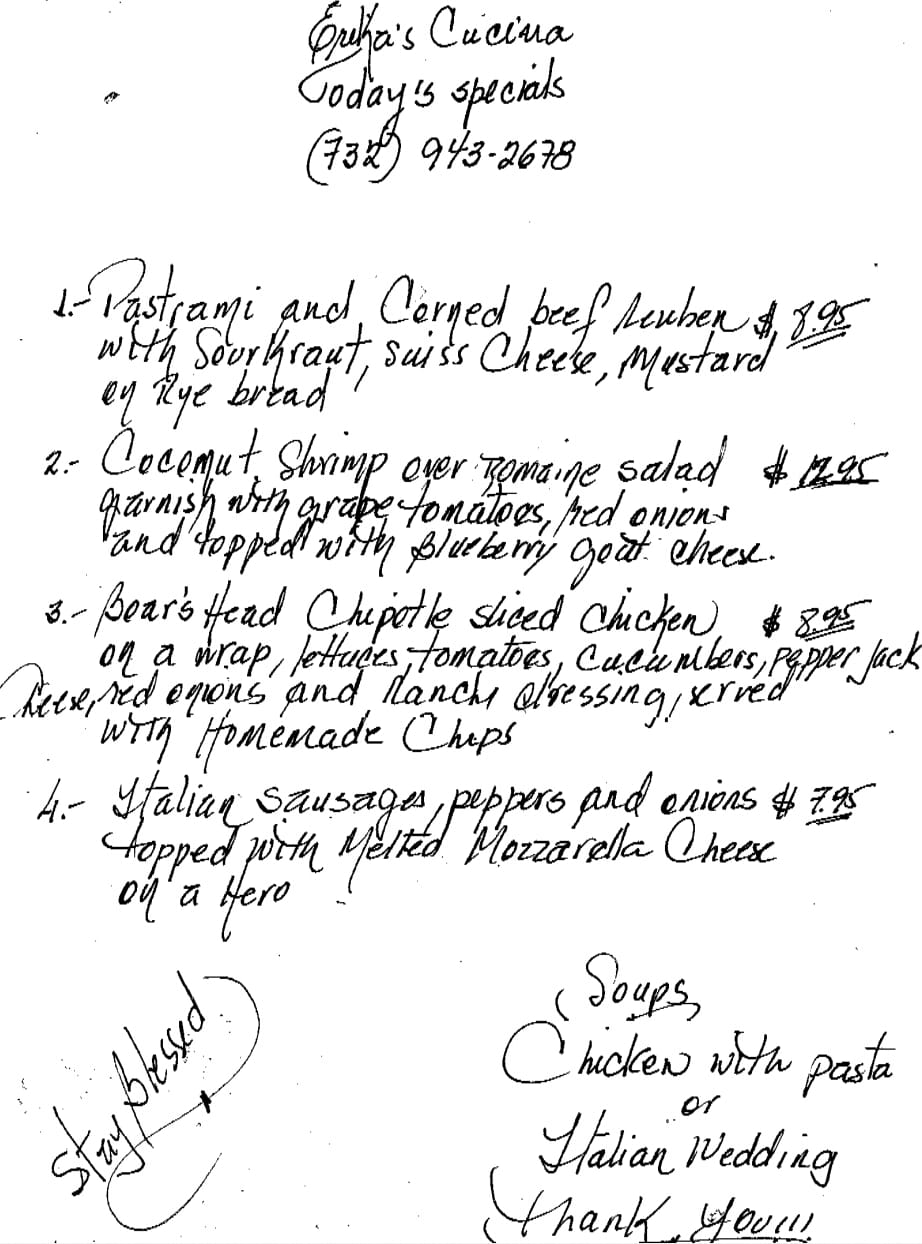 Erika's Cucina
Today's specials
(732) 943-2678
1.- Pastrami and Corned beef Reuben $ 8.95
with Sourkraut, Suiss Cheese, Mustard
on Rye bread
2.- Coconut Shrimp over Romaine salad $ 12.95
garnish with grape tomatoes, red onions
and topped with Blueberry goat cheese.
3.- Boar's Head Chipotle sliced chicken $ 8.95
on a wrap, lettuces, tomatoes, Cucumbers, pepper Jack
Cheese, red onions and Ranch dressing, served
with Homemade Chips
4.- Italian sausages, peppers and onions $ 7.95
topped with Melted Mozzarella Cheese
on a Hero
Stay Blessed
Soups
Chicken with pasta
or
Italian Wedding
Thank You!!!